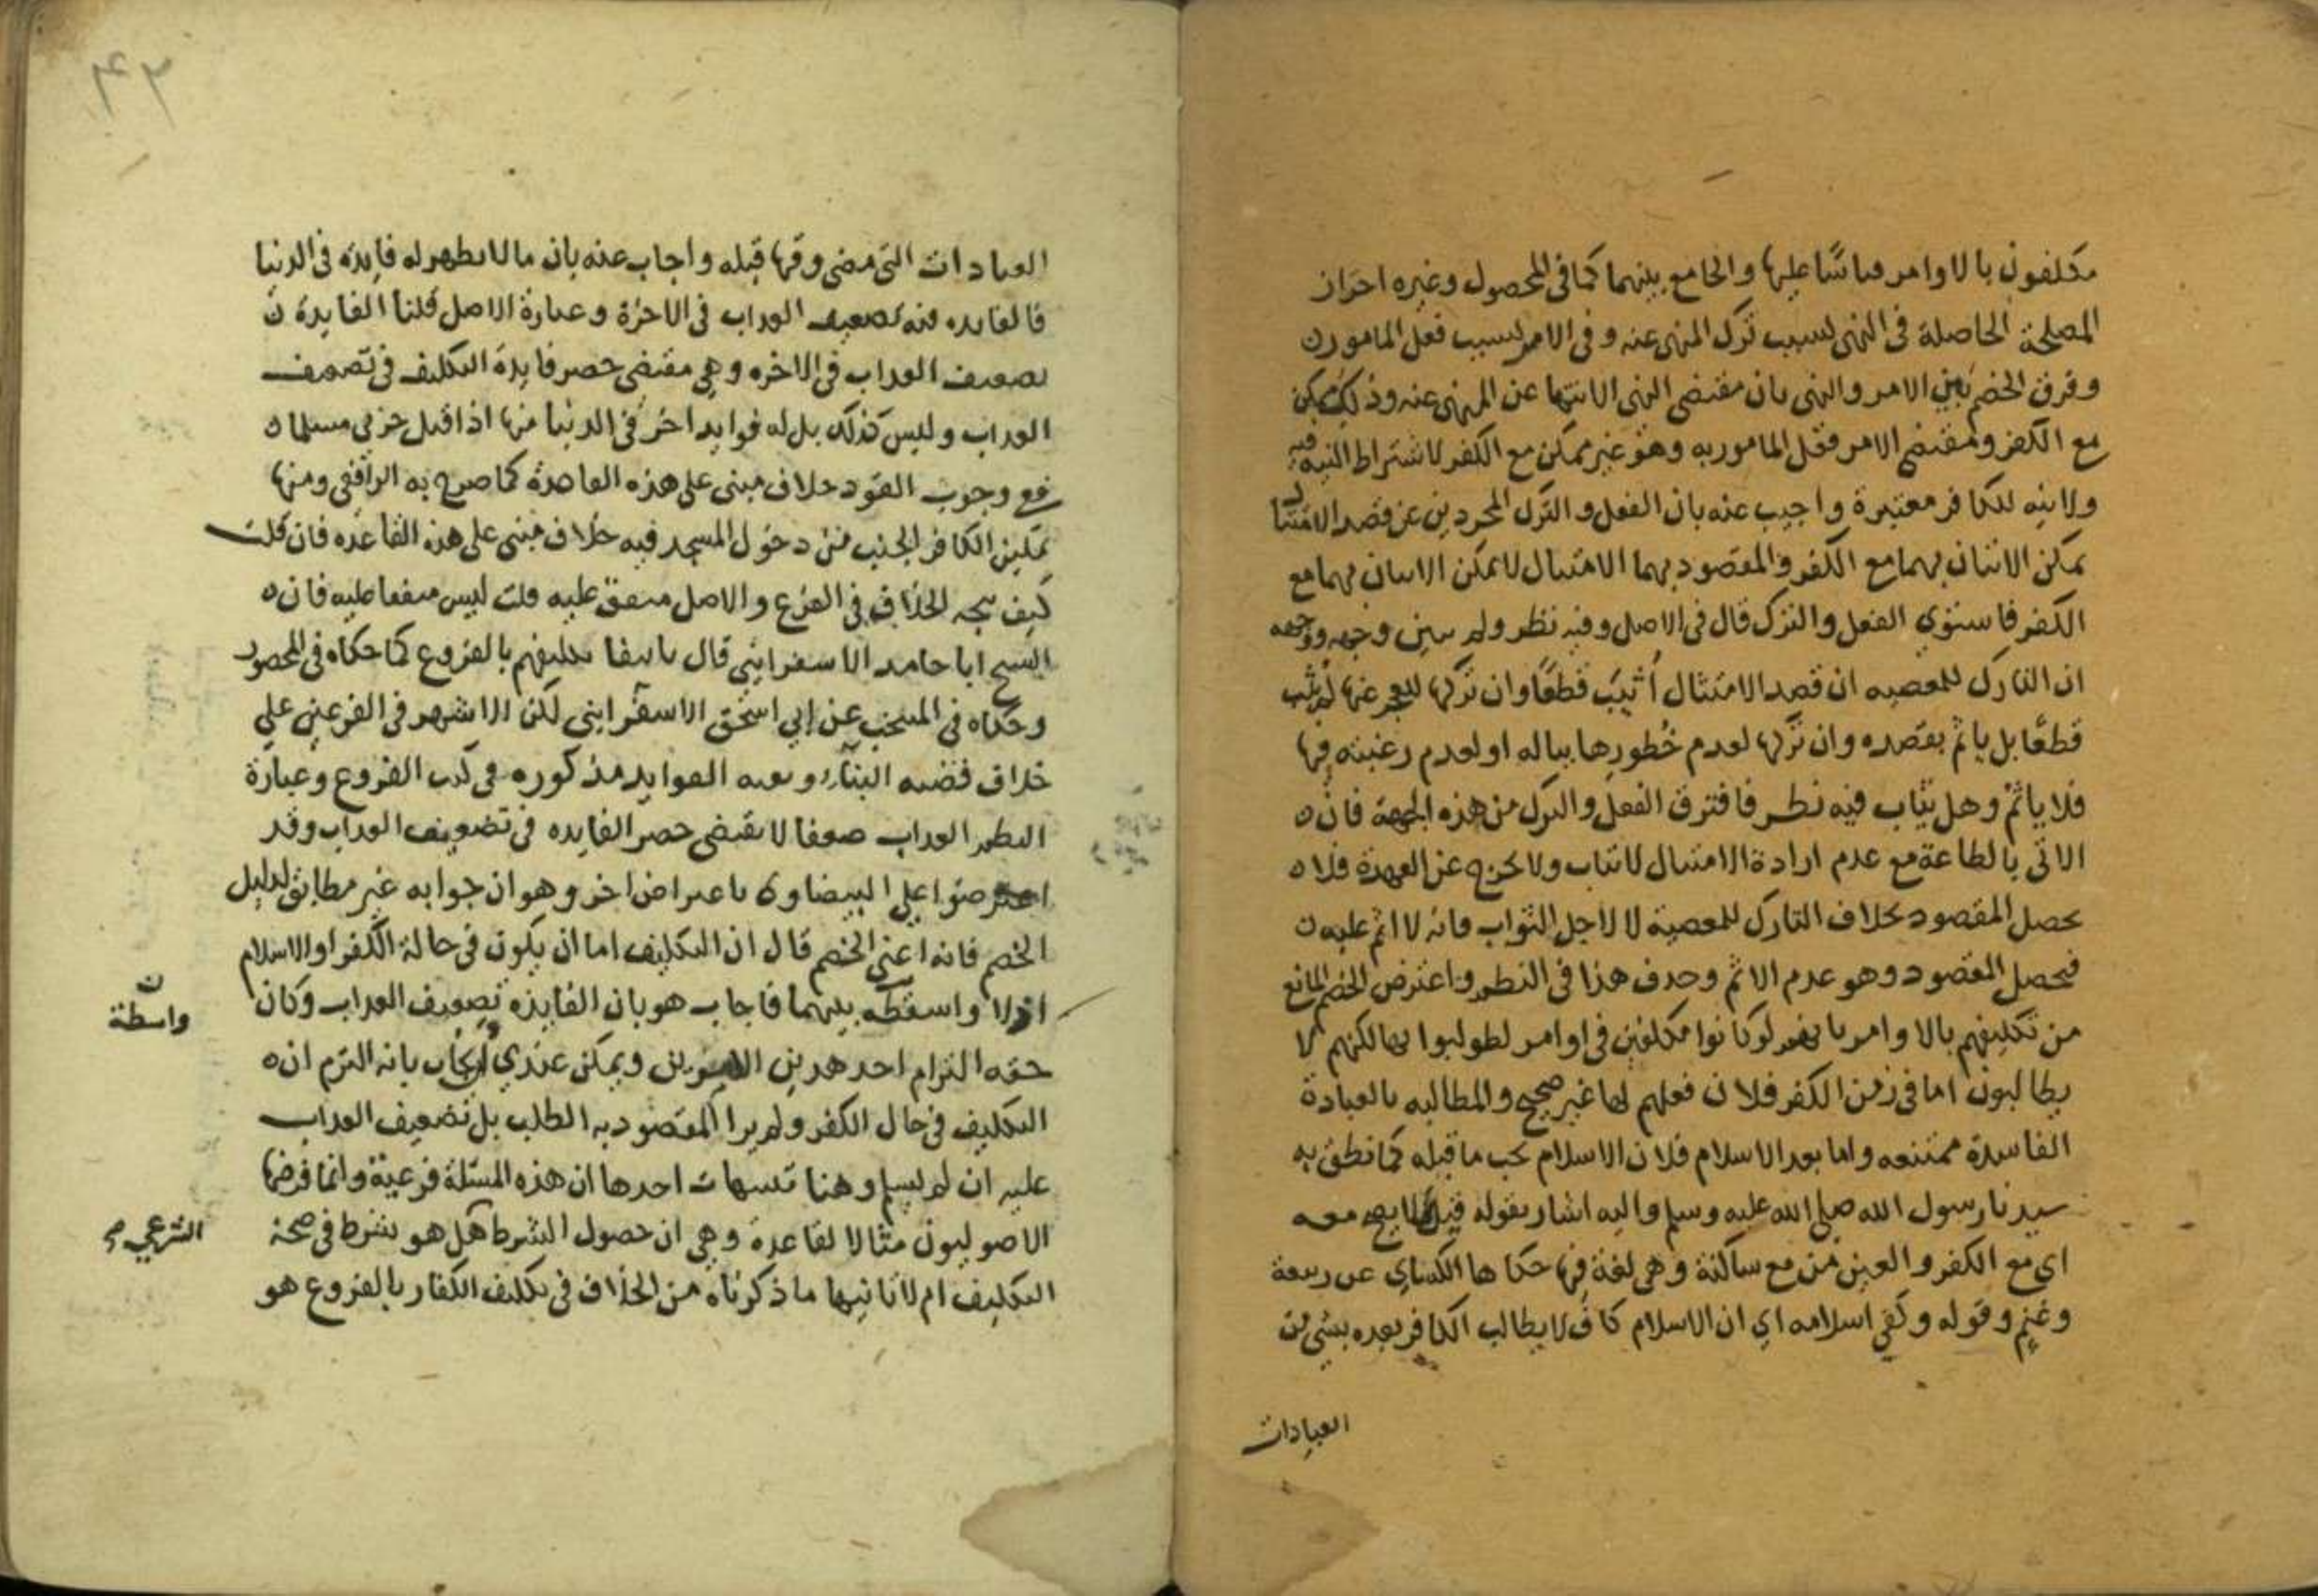 مكلفون بالاوامر قياسا عليها والجامع بينهما كما في المحصول وغيره احراز
المصلحة الحاصلة في النهي بسبب ترك المنهي عنه وفي الامر بسبب فعل المامور ن
وفرق الخصم بين الامر والنهي بان مقتضى النهي الانتها عن المنهي عنه وذلك ممكن
مع الكفر ومقتضى الامر فعل المامور به وهو غير ممكن مع الكفر لاشتراط النية فيه
ولا نيه للكافر معتبرة واجيب عنه بان الفعل والترك المجردين عن قصد الامتثال
يمكن الاتيان بهما مع الكفر والمقصود بهما الامتثال لا يمكن الاتيان بهما مع
الكفر فاستوي الفعل والترك قال في الاصل وفيه نظر ولم يبين وجهه ووجهه
ان التارك للمعصيه ان قصد الامتثال أثيب قطعًا وان تركها للعجز عنها لم يثب
قطعًا بل ياثم بقصده وان تركها لعدم خُطورها بباله او لعدم رغبته فيها
فلا ياثم وهل يثاب فيه نظر فافترق الفعل والترك من هذه الجهة فان ه
الاتي بالطاعة مع عدم ارادة الامتثال لا يثاب ولا يخرج عن العهدة فلا ه
يحصل المقصود بخلاف التارك للمعصية لا لاجل الثواب فانه لا اثم عليه ن
فيحصل المقصود وهو عدم الاثم وحذف هذا في النظم واعترض الخصم المانع
من تكليفهم بالاوامر بانهم لو كانوا مكلفين في اوامر لطولبوا بها لكنهم لا
يطالبون اما في زمن الكفر فلان فعلهم لها غير صحيح والمطالبه بالعبادة
الفاسدة ممتنعه واما بعد الاسلام فلان الاسلام يجب ما قبله كما نطق به
سيدنا رسول الله صلي الله عليه وسلم واليه اشار بقوله قيل لا يصح معه
اي مع الكفر والعين من مع ساكنة وهي لغة فيها حكاها الكساي عن ربيعة
وغنم وقوله وكفي اسلامه اي ان الاسلام كاف لا يطالب الكافر بعده بشي من
العبادات
العبادات التي مضى وقتها قبله واجاب عنه بان ما لا يظهر له فايدة في الدنيا
فالفايده فيه تضعيف العذاب في الاخرة وعبارة الاصل قلنا الفايدة ن
تضعيف العذاب في الاخره وهي مقتضى حصر فايدة التكليف في تضعيف
العذاب وليس كذلك بل له فوايد اخر في الدنيا منها اذا قتل حربي مسلما ه
فع وجوب القود خلاف مبنى على هذه القاعدة كما صرح به الرافعي ومنها
تمكين الكافر الجنب من دخول المسجد فيه خلاف مبنى على هذه القاعده فان قلت
كيف يتجه الخلاف في الفرع والاصل متفق عليه قلت ليس متفقا عليه فان ه
الشيخ ابا حامد الاسفرايني قال بانتفا تكليفهم بالفروع كما حكاه في المحصول
وحكاه في المنتخب عن ابي اسحق الاسفرايني لكن الاشهر في الفرعين علي
خلاف قضيه البناء وبقيه الفوايد مذكوره في كتب الفروع وعبارة
النظم العذاب ضعفا لا يقتضى حصر الفايده في تضعيف العذاب وقد
اعترضوا علي البيضاوي باعتراض اخر وهو ان جوابه غير مطابق لدليل
الخصم فانه اعني الخصم قال ان التكليف اما ان يكون في حالة الكفر او الاسلام
اذ لا واسطة بينهما فاجاب هو بان الفايدة تضعيف العذاب وكان
ن
واسطة
حقه التزام احد هدين الامرين ويمكن عندي ان يجاب بانه التزم ان ه
التكليف في حال الكفر ولم ير المقصود به الطلب بل تضعيف العذاب
عليه ان لم يسلم وهنا تنبيهات احدها ان هذه المسئلة فرعية وانما فرضها
الاصوليون مثالا لقاعدة وهي ان حصول الشرط هل هو شرط في صحة
الشرعي صح
التكليف ام لا ثانيها ما ذكرناه من الخلاف في تكليف الكفار بالفروع هو